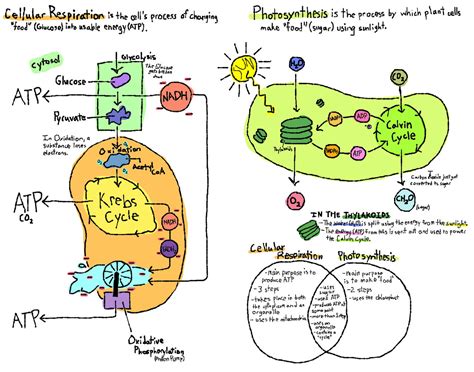 Cellular Respiration is the cell's process of changing
"food" (Glucose) into usable energy (ATP).
Cytosol
Glycolysis
Glucose
ATP
NADH
Pyruvate
In Oxidation, a
substance loses
electrons.
Oxidation
Acetyl
CoA
Krebs
Cycle
ATP
CO2
NADH
ATP
Oxidative
Phosphorylation
Photosynthesis is the process by which plant cells
make "food" (sugar) using sunlight.
H2O
CO2
Thylakoids
ADP
ATP
Calvin
Cycle
O2
CH2O
(sugar)
Carbon dioxide just got
converted to sugar
IN THE THYLAKOIDS
- The water is split using the energy from the sunlight.
- The energy (ATP) from this is sent out and used to power
the Calvin Cycle.
Cellular
Respiration
Photosynthesis
- Main purpose is to
produce ATP
- 3 steps
- takes place in both
the cytoplasm and an
organelle
- uses the mitochondria
- uses
sugar
- uses ATP
- produces ATP at
some point
- more than 1 step
- uses an
organelle
- contains
a "cycle"
- main purpose
is to make food
- 2 steps
- uses the chloroplast